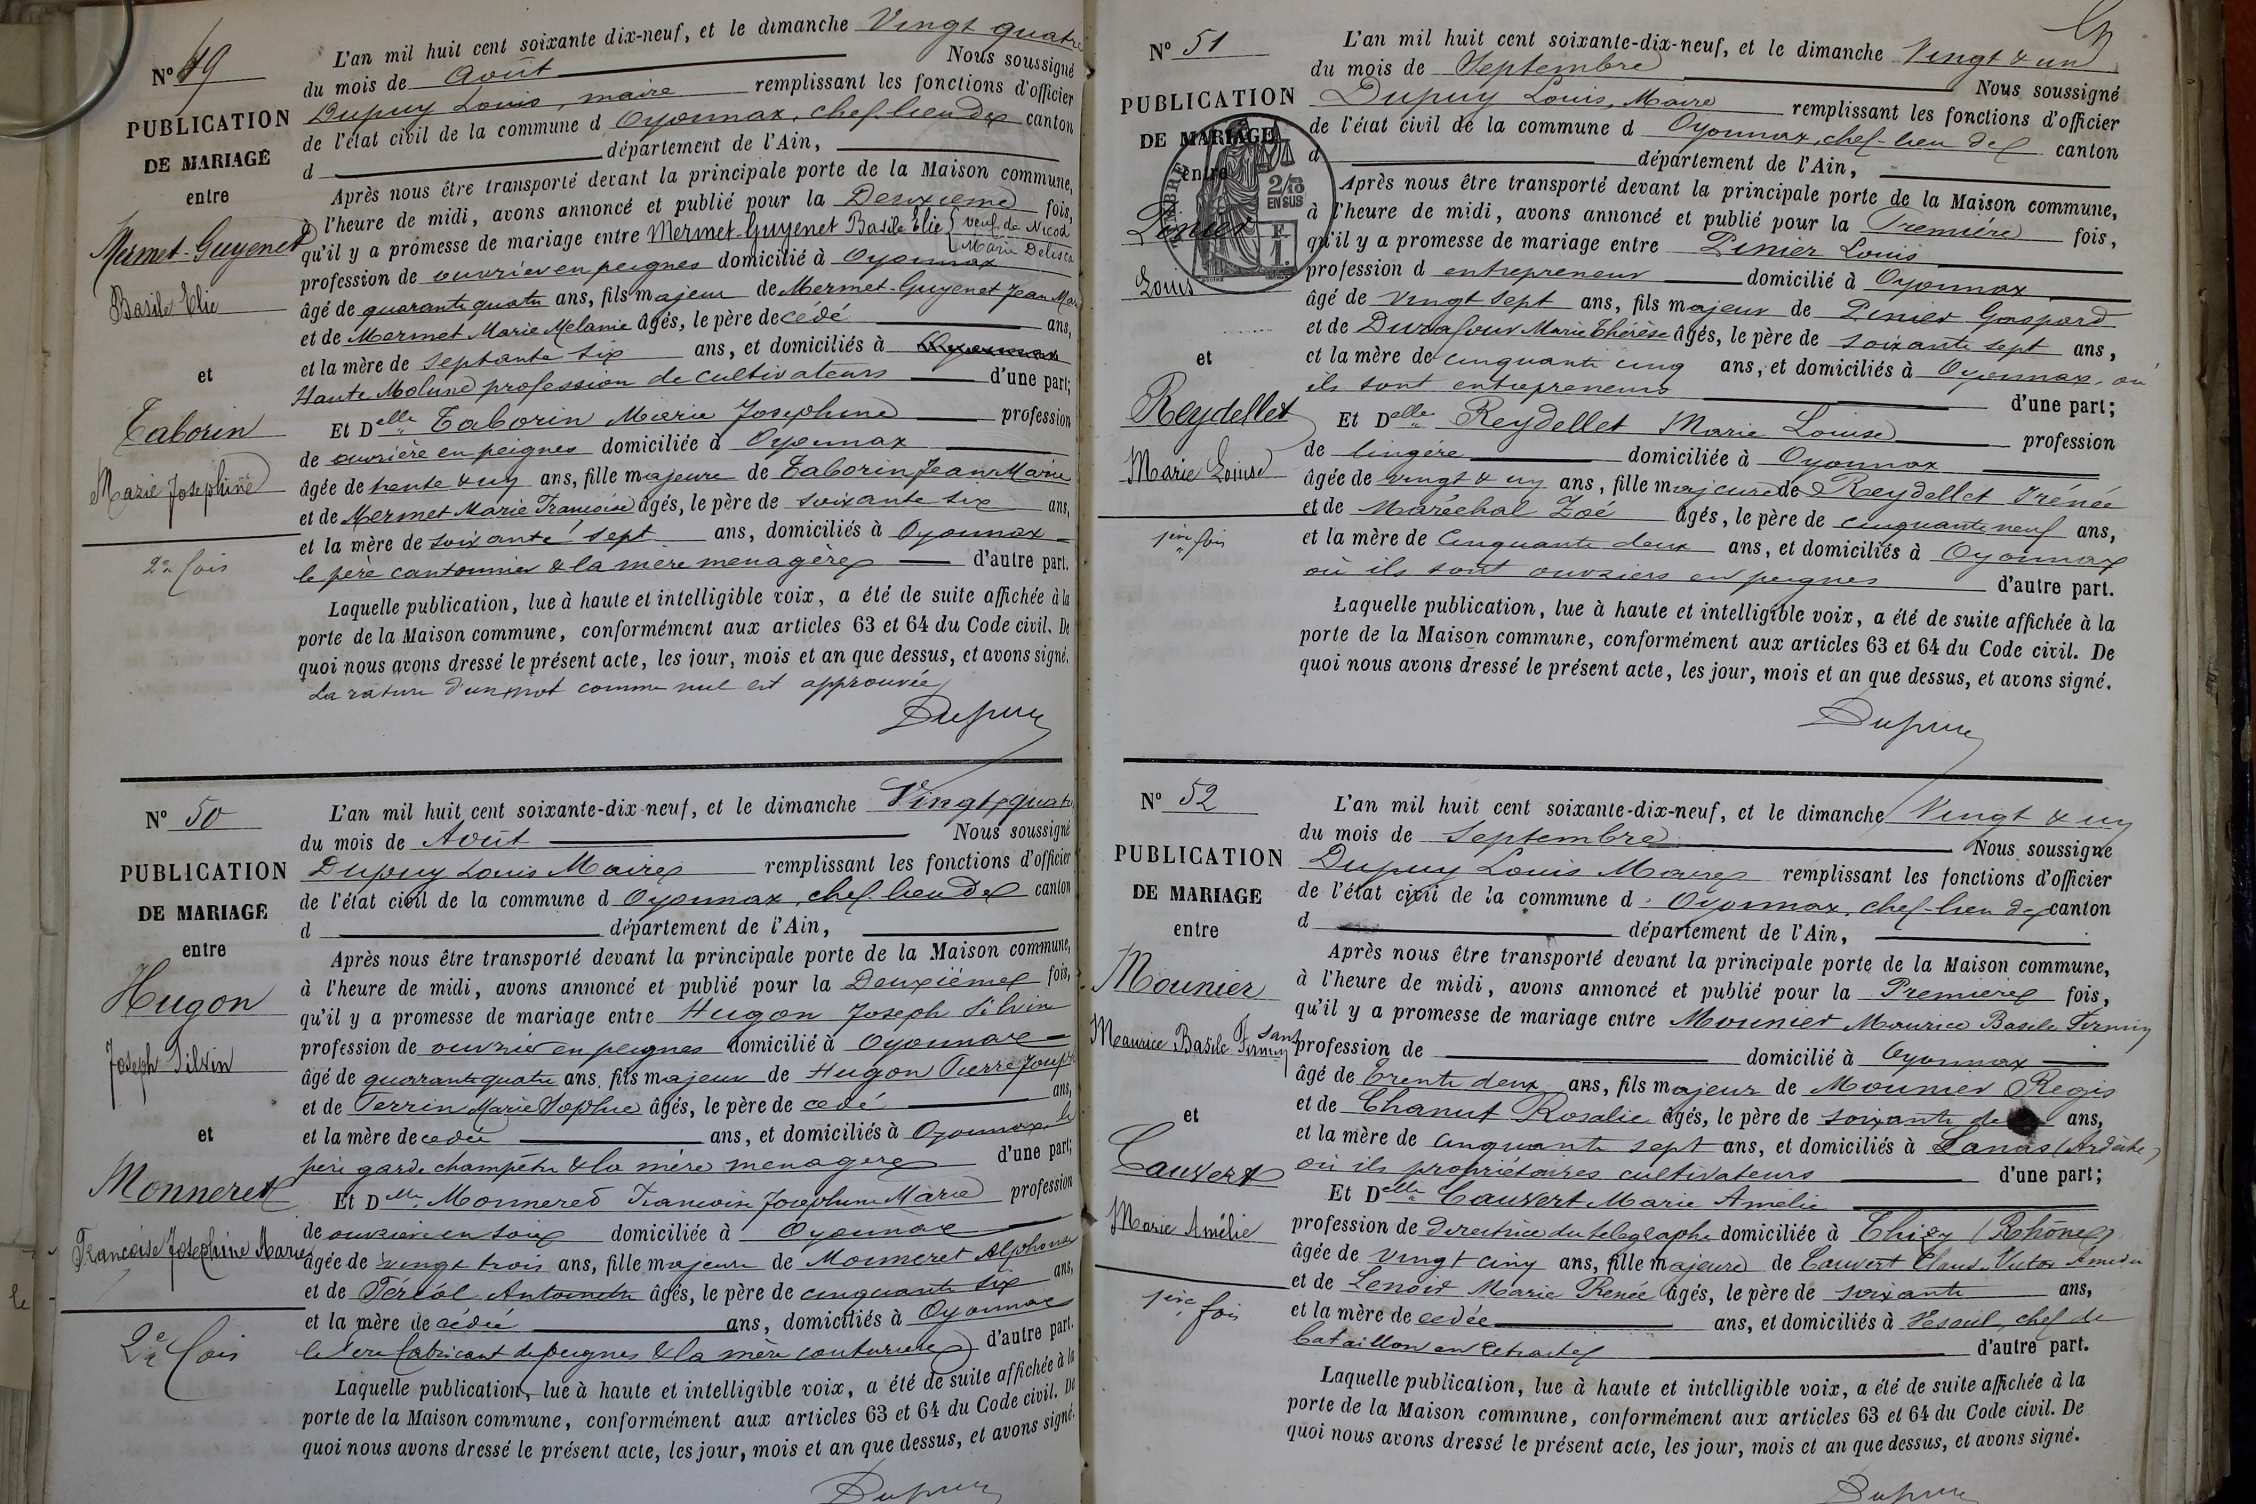 N° 49
PUBLICATION
DE MARIAGE
entre
Mermet-Guyenet
Basile Elie
et
Taborin
Marie Josephine
2e fois
L'an mil huit cent soixante dix-neuf, et le dimanche Vingt quatre
du mois de Août Nous soussigné
Dupuy Louis, maire remplissant les fonctions d'officier
de l'état civil de la commune d Oyonnax, chef-lieu de canton
d département de l'Ain,
Après nous être transporté devant la principale porte de la Maison commune,
à l'heure de midi, avons annoncé et publié pour la Deuxième fois,
qu'il y a promesse de mariage entre Mermet-Guyenet Basile Elie { veuf de Nicod
Marie Delisca
profession de ouvrier en peignes domicilié à Oyonnax
âgé de quarante quatre ans, fils majeur de Mermet-Guyenet Jean Marie
et de Mermet Marie Melanie âgés, le père de cédé ans,
et la mère de septante six ans, et domiciliés à Oyonnax
Haute Molune profession de cultivateurs d'une part;
Et Delle Taborin Marie Josephine profession
de ouvrière en peignes domiciliée à Oyonnax
âgée de trente & un ans, fille majeure de Taborin Jean Marie
et de Mermet Marie Françoise âgés, le père de soixante six ans,
et la mère de soixante sept ans, domiciliés à Oyonnax
le père cantonnier & la mère menagère d'autre part.
Laquelle publication, lue à haute et intelligible voix, a été de suite affichée à la
porte de la Maison commune, conformément aux articles 63 et 64 du Code civil. De
quoi nous avons dressé le présent acte, les jour, mois et an que dessus, et avons signé.
La rature d'un mot comme nul est approuvée
Dupuy
N° 50
PUBLICATION
DE MARIAGE
entre
Hugon
Joseph Silvin
et
Monneret
Françoise Josephine Marie
2e fois
L'an mil huit cent soixante-dix-neuf, et le dimanche Vingt quatre
du mois de Août Nous soussigné
Dupuy Louis Maire remplissant les fonctions d'officier
de l'état civil de la commune d Oyonnax, chef-lieu de canton
d département de l'Ain,
Après nous être transporté devant la principale porte de la Maison commune,
à l'heure de midi, avons annoncé et publié pour la Deuxième fois,
qu'il y a promesse de mariage entre Hugon Joseph Silvin
profession de ouvrier en peignes domicilié à Oyonnax
âgé de quarante quatre ans, fils majeur de Hugon Pierre Joseph
et de Perrin Marie Sophie âgés, le père de cedé ans,
et la mère de cedée ans, et domiciliés à Oyonnax, le
père garde champêtre & la mère menagère d'une part;
Et Delle Monneret Francoise Josephine Marie profession
de ouvrière en soie domiciliée à Oyonnax
âgée de vingt trois ans, fille majeure de Monneret Alphonse
et de Féréol Antoinette âgés, le père de cinquante six ans,
et la mère de cédée ans, domiciliés à Oyonnax
le père fabricant de peignes & la mère couturière d'autre part.
Laquelle publication, lue à haute et intelligible voix, a été de suite affichée à la
porte de la Maison commune, conformément aux articles 63 et 64 du Code civil. De
quoi nous avons dressé le présent acte, les jour, mois et an que dessus, et avons signé.
Dupuy
N° 51
PUBLICATION
DE MARIAGE
entre
TIMBRE
2/10
EN SUS
F.
1.
Pinier
Louis
et
Reydellet
Marie Louise
1ère fois
L'an mil huit cent soixante-dix-neuf, et le dimanche Vingt & un
du mois de Septembre Nous soussigné
Dupuy Louis, Maire remplissant les fonctions d'officier
de l'état civil de la commune d Oyonnax, chef-lieu de canton
d département de l'Ain,
Après nous être transporté devant la principale porte de la Maison commune,
à l'heure de midi, avons annoncé et publié pour la Première fois,
qu'il y a promesse de mariage entre Pinier Louis
profession d entrepreneur domicilié à Oyonnax
âgé de vingt sept ans, fils majeur de Pinier Gaspard
et de Durafour Marie Thérèse âgés, le père de soixante sept ans,
et la mère de cinquante cinq ans, et domiciliés à Oyonnax, où
ils sont entrepreneurs d'une part;
Et Delle Reydellet Marie Louise profession
de lingère domiciliée à Oyonnax
âgée de vingt & un ans, fille majeure de Reydellet Irénée
et de Maréchal Zoé âgés, le père de cinquante neuf ans,
et la mère de Cinquante deux ans, et domiciliés à Oyonnax
où ils sont ouvriers en peignes d'autre part.
Laquelle publication, lue à haute et intelligible voix, a été de suite affichée à la
porte de la Maison commune, conformément aux articles 63 et 64 du Code civil. De
quoi nous avons dressé le présent acte, les jour, mois et an que dessus, et avons signé.
Dupuy
N° 52
PUBLICATION
DE MARIAGE
entre
Mounier
Maurice Basile Firmin
et
Cauvert
Marie Amélie
1ère fois
L'an mil huit cent soixante-dix-neuf, et le dimanche Vingt & un
du mois de Septembre Nous soussigné
Dupuy Louis Maire remplissant les fonctions d'officier
de l'état civil de la commune d Oyonnax, chef-lieu de canton
d département de l'Ain,
Après nous être transporté devant la principale porte de la Maison commune,
à l'heure de midi, avons annoncé et publié pour la Première fois,
qu'il y a promesse de mariage entre Mounier Maurice Basile Firmin
sans profession de domicilié à Oyonnax
âgé de Trente deux ans, fils majeur de Mounier Regis
et de Chanut Rosalie âgés, le père de soixante ans,
et la mère de cinquante sept ans, et domiciliés à Lanas (Ardèche)
où ils propriétaires cultivateurs d'une part;
Et Delle Cauvert Marie Amélie
profession de directrice du télégraphe domiciliée à Thizy (Rhône)
âgée de vingt cinq ans, fille majeure de Cauvert Claude Victor Amédée
et de Lenoir Marie Renée âgés, le père de soixante ans,
et la mère de cedée ans, et domiciliés à Vesoul, chef de
bataillon en retraite d'autre part.
Laquelle publication, lue à haute et intelligible voix, a été de suite affichée à la
porte de la Maison commune, conformément aux articles 63 et 64 du Code civil. De
quoi nous avons dressé le présent acte, les jour, mois et an que dessus, et avons signé.
Dupuy